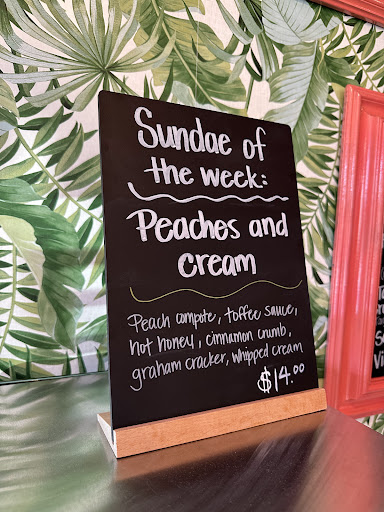 Sundae of
the week:
Peaches and
cream
Peach compote, toffee sauce,
hot honey, cinnamon crumb,
graham cracker, whipped cream
$14.00